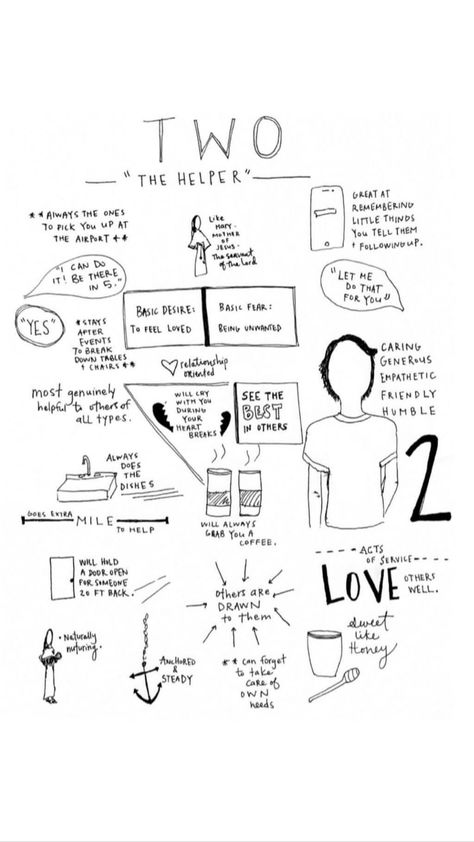 TWO
"THE HELPER"
** ALWAYS THE ONES
TO PICK YOU UP AT
THE AIRPORT **
Like
MARY-
MOTHER
OF
JESUS-
The servant
of the Lord
GREAT AT
REMEMBERING
LITTLE THINGS
YOU TELL THEM
+ FOLLOWING UP.
"I CAN DO
IT! BE THERE
IN 5."
"LET ME
DO THAT
FOR YOU"
"YES"
*STAYS
AFTER
EVENTS
TO BREAK
DOWN TABLES
+ CHAIRS **
BASIC DESIRE:
TO FEEL LOVED
BASIC FEAR:
BEING UNWANTED
relationship
oriented
CARING
GENEROUS
EMPATHETIC
FRIENDLY
HUMBLE
most genuinely
helpful to others of
all types.
WILL CRY
WITH YOU
DURING
YOUR
HEART
BREAKS
SEE THE
BEST
IN OTHERS
2
ALWAYS
DOES
THE
DISHES
GOES EXTRA
MILE
TO HELP
WILL ALWAYS
GRAB YOU A
COFFEE.
WILL HOLD
A DOOR OPEN
FOR SOMEONE
20 FT BACK.
others are
DRAWN
to them
--- ACTS
OF SERVICE ----
LOVE OTHERS
WELL.
• Naturally
nuturing.
ANCHORED
&
STEADY
** can forget
to take
care of
OWN
needs
sweet
like
Honey